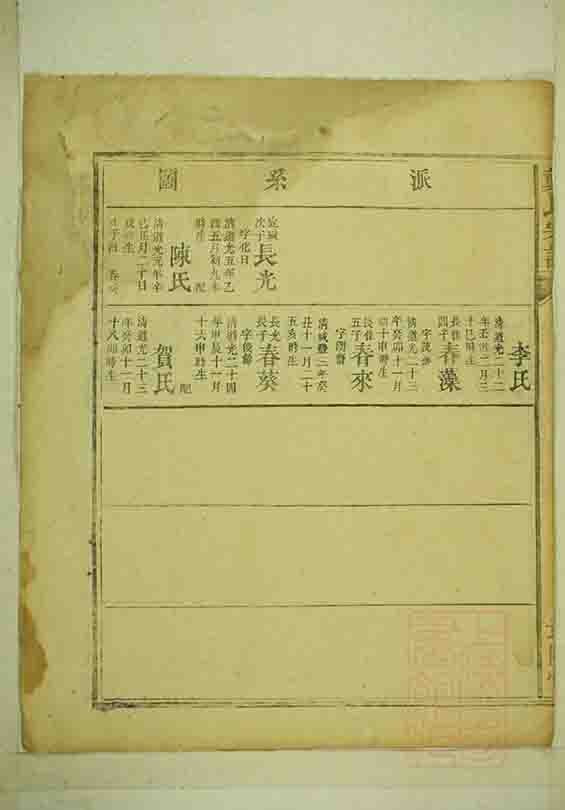 派系圖
長光
次子
字化日
清道光五年乙
酉五月初九未
時生
配
陳氏
清道光元年辛
巳正月二十日
戌時生
李氏
清道光二十二
年壬寅二月三
十巳時生
春藻
四子
清道光二十三
年癸卯十一月
初十申時生
春來
五子
字朗齋
清咸豐三年癸
丑十一月二十
五亥時生
長光
長子
春葵
字俊齡
清道光二十四
年甲辰十一月
十六申時生
配
賀氏
清道光二十三
年癸卯十一月
十八卯時生